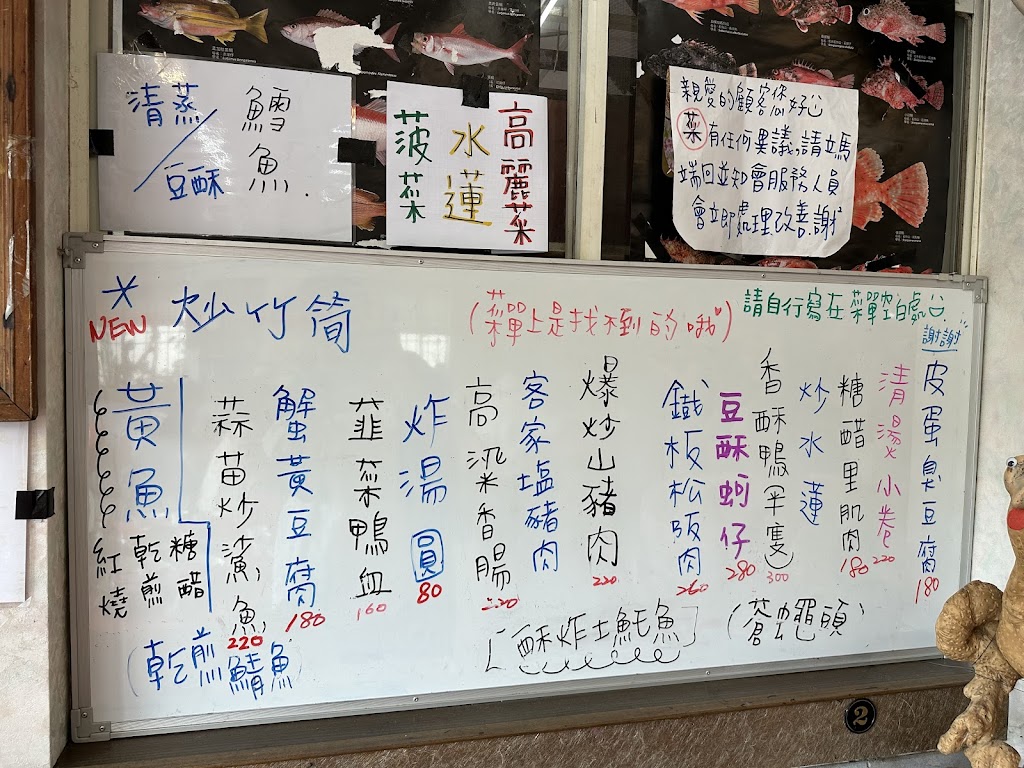 清蒸/豆酥 鱈魚.
高麗菜
水蓮
菠菜
親愛的顧客您好
菜有任何異議,請立馬
端回並知會服務人員
會立即處理改善.謝謝
NEW 炒竹筒
(菜單上是找不到的哦)
請自行寫在菜單空白處
謝謝
皮蛋臭豆腐 180
清燙小卷 220
糖醋里肌肉 180
炒水蓮
香酥鴨(半隻) 300
豆酥蚵仔 280
鐵板松阪肉 260
爆炒山豬肉 220
客家塩豬肉
高粱香腸 220
炸湯圓 80
韮菜鴨血 160
蟹黃豆腐 180
蒜苗炒鯊魚 220
黃魚
糖醋
乾煎
紅燒
(乾煎鯖魚)
[酥炸土魠魚]
(蒼蠅頭)
2